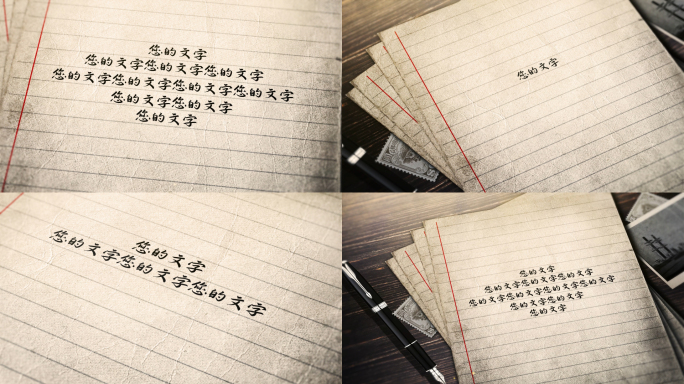 您的文字
您的文字您的文字您的文字
您的文字您的文字您的文字您的文字
您的文字您的文字
您的文字
您的文字
您的文字
您的文字您的文字您的文字
您的文字
您的文字您的文字您的文字
您的文字您的文字您的文字您的文字
您的文字您的文字
您的文字